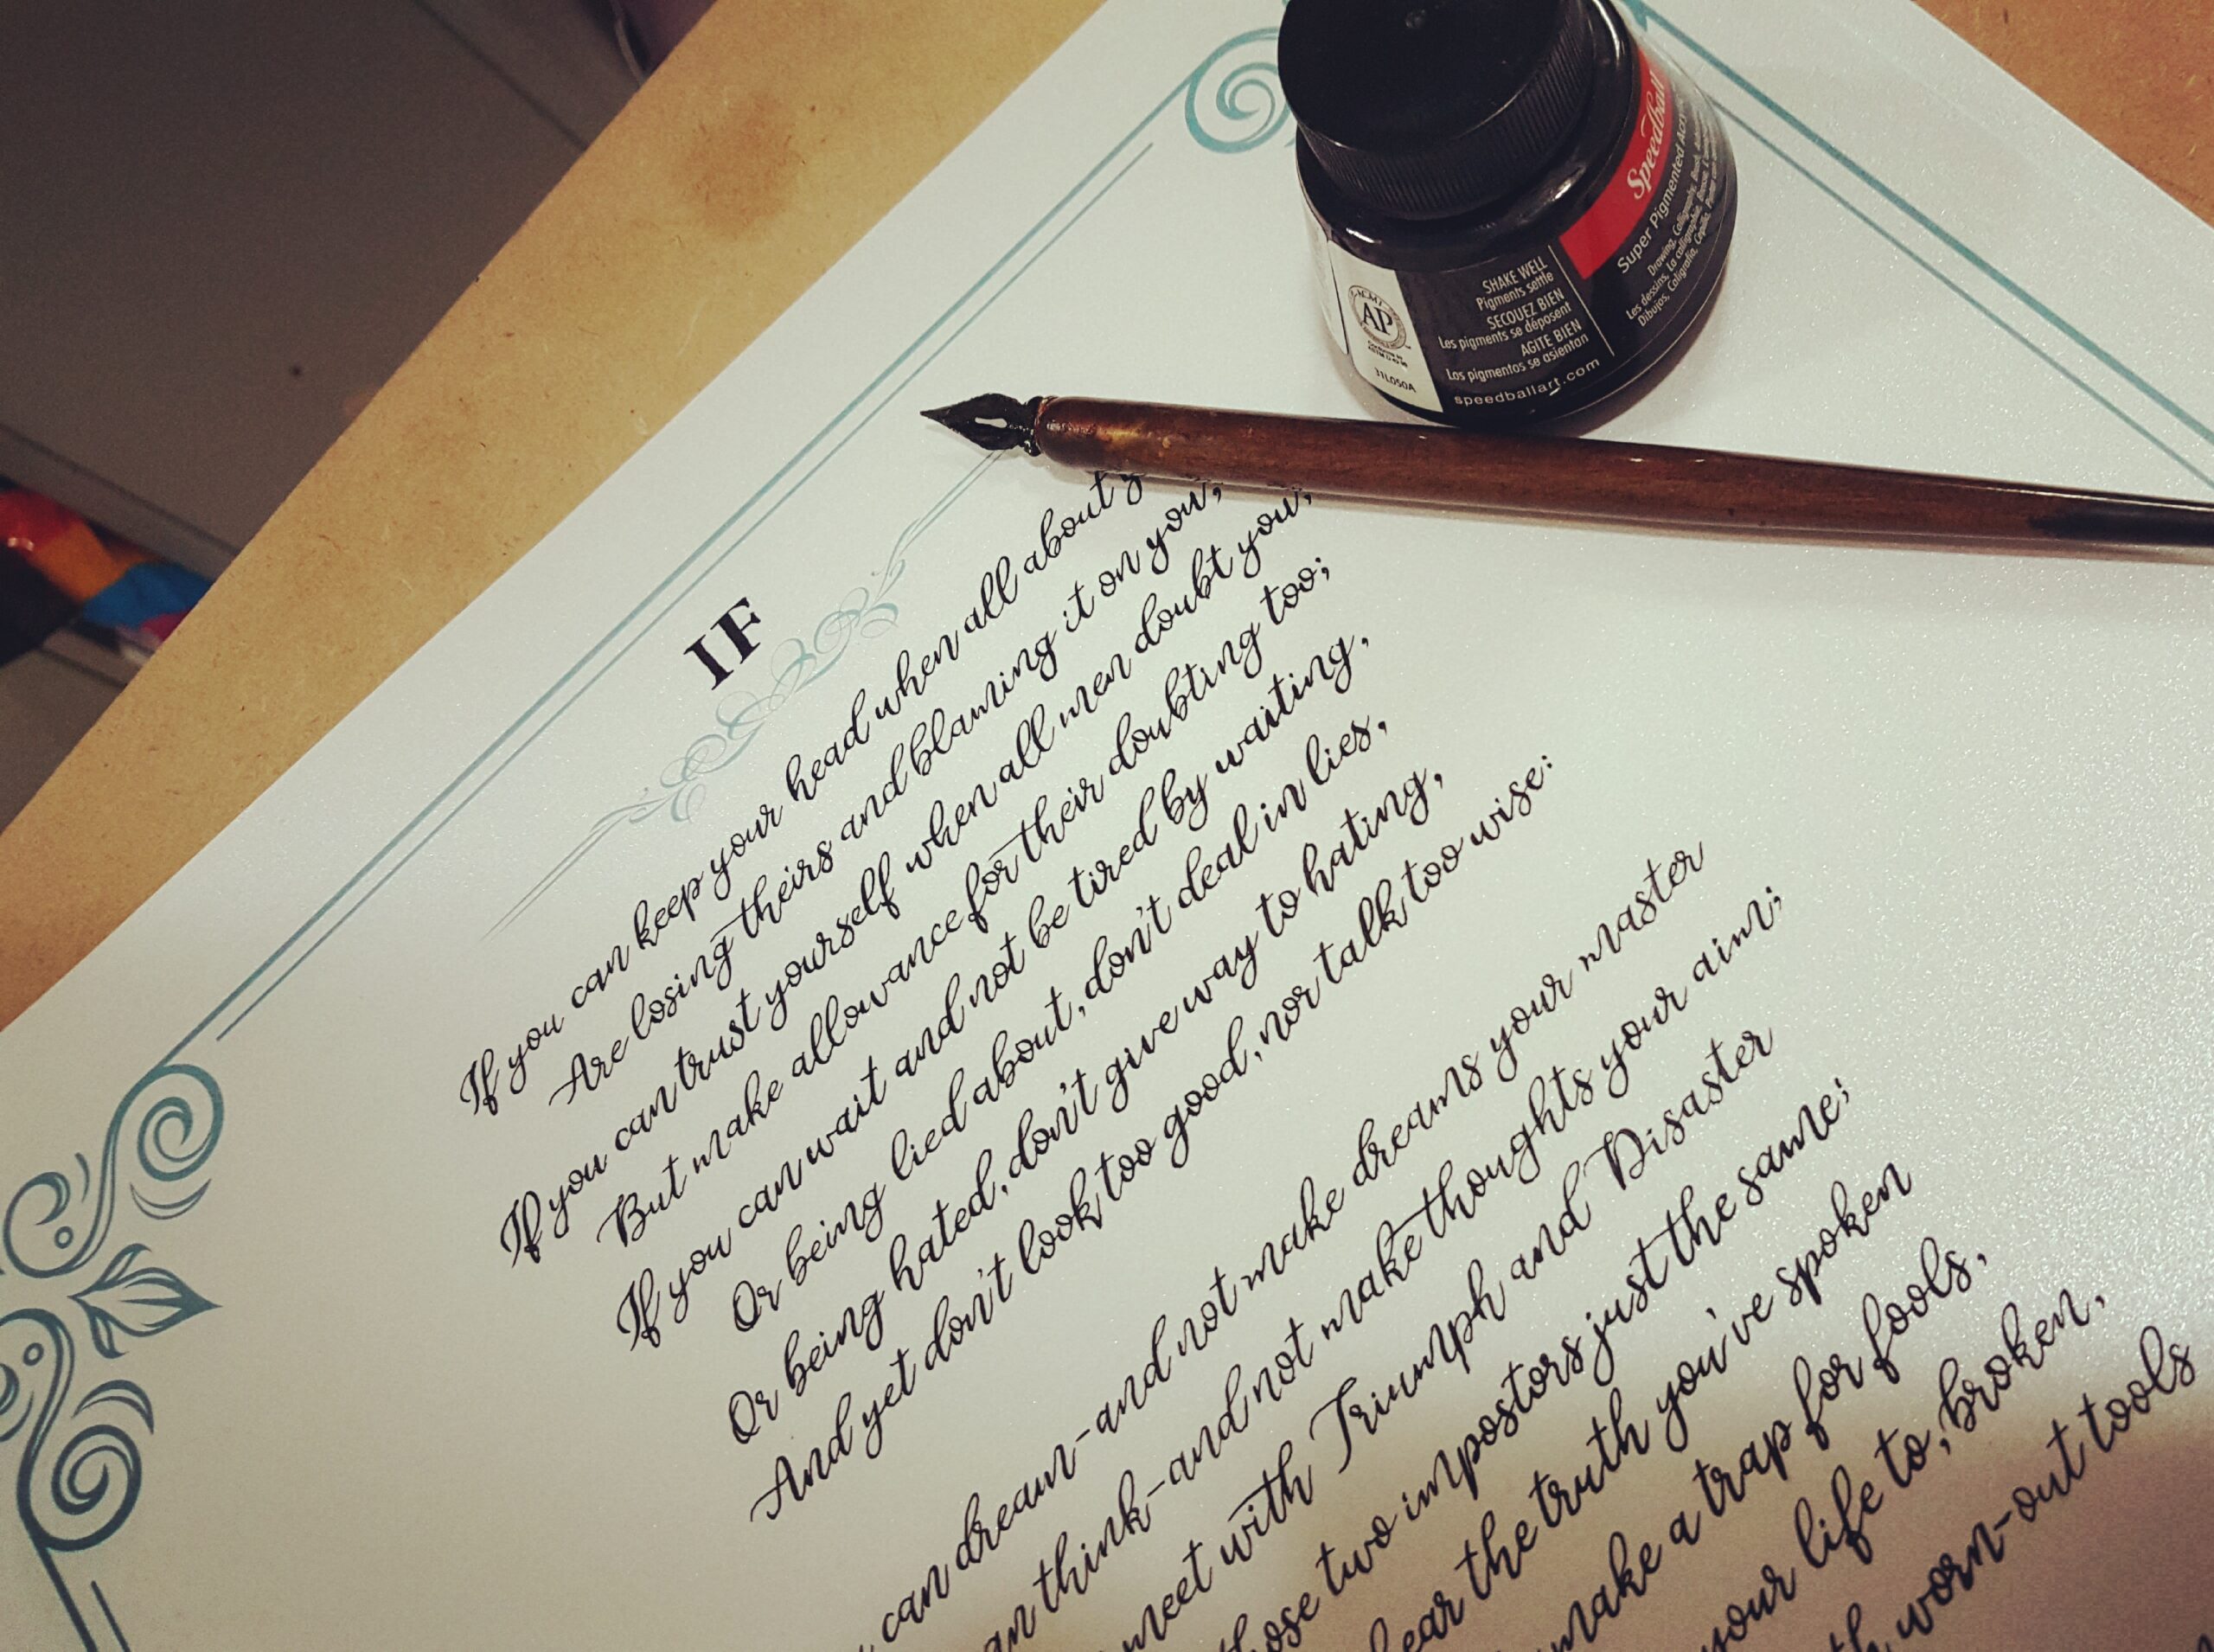 Speedball
Super Pigmented
SHAKE WELL
Pigments settle
SECOUEZ BIEN
Les pigments se déposent
AGITE BIEN
Los pigmentos se asientan
speedballart.com
AP
31L050A
IF
If you can keep your head when all about y
Are losing theirs and blaming it on you;
If you can trust yourself when all men doubt you;
But make allowance for their doubting too;
If you can wait and not be tired by waiting,
Or being lied about, don't deal in lies,
Or being hated, don't give way to hating,
And yet don't look too good, nor talk too wise:
can dream-and not make dreams your master
an think-and not make thoughts your aim;
meet with Triumph and Disaster
hose two impostors just the same;
ear the truth you've spoken
make a trap for fools,
your life to, broken,
th worn-out tools